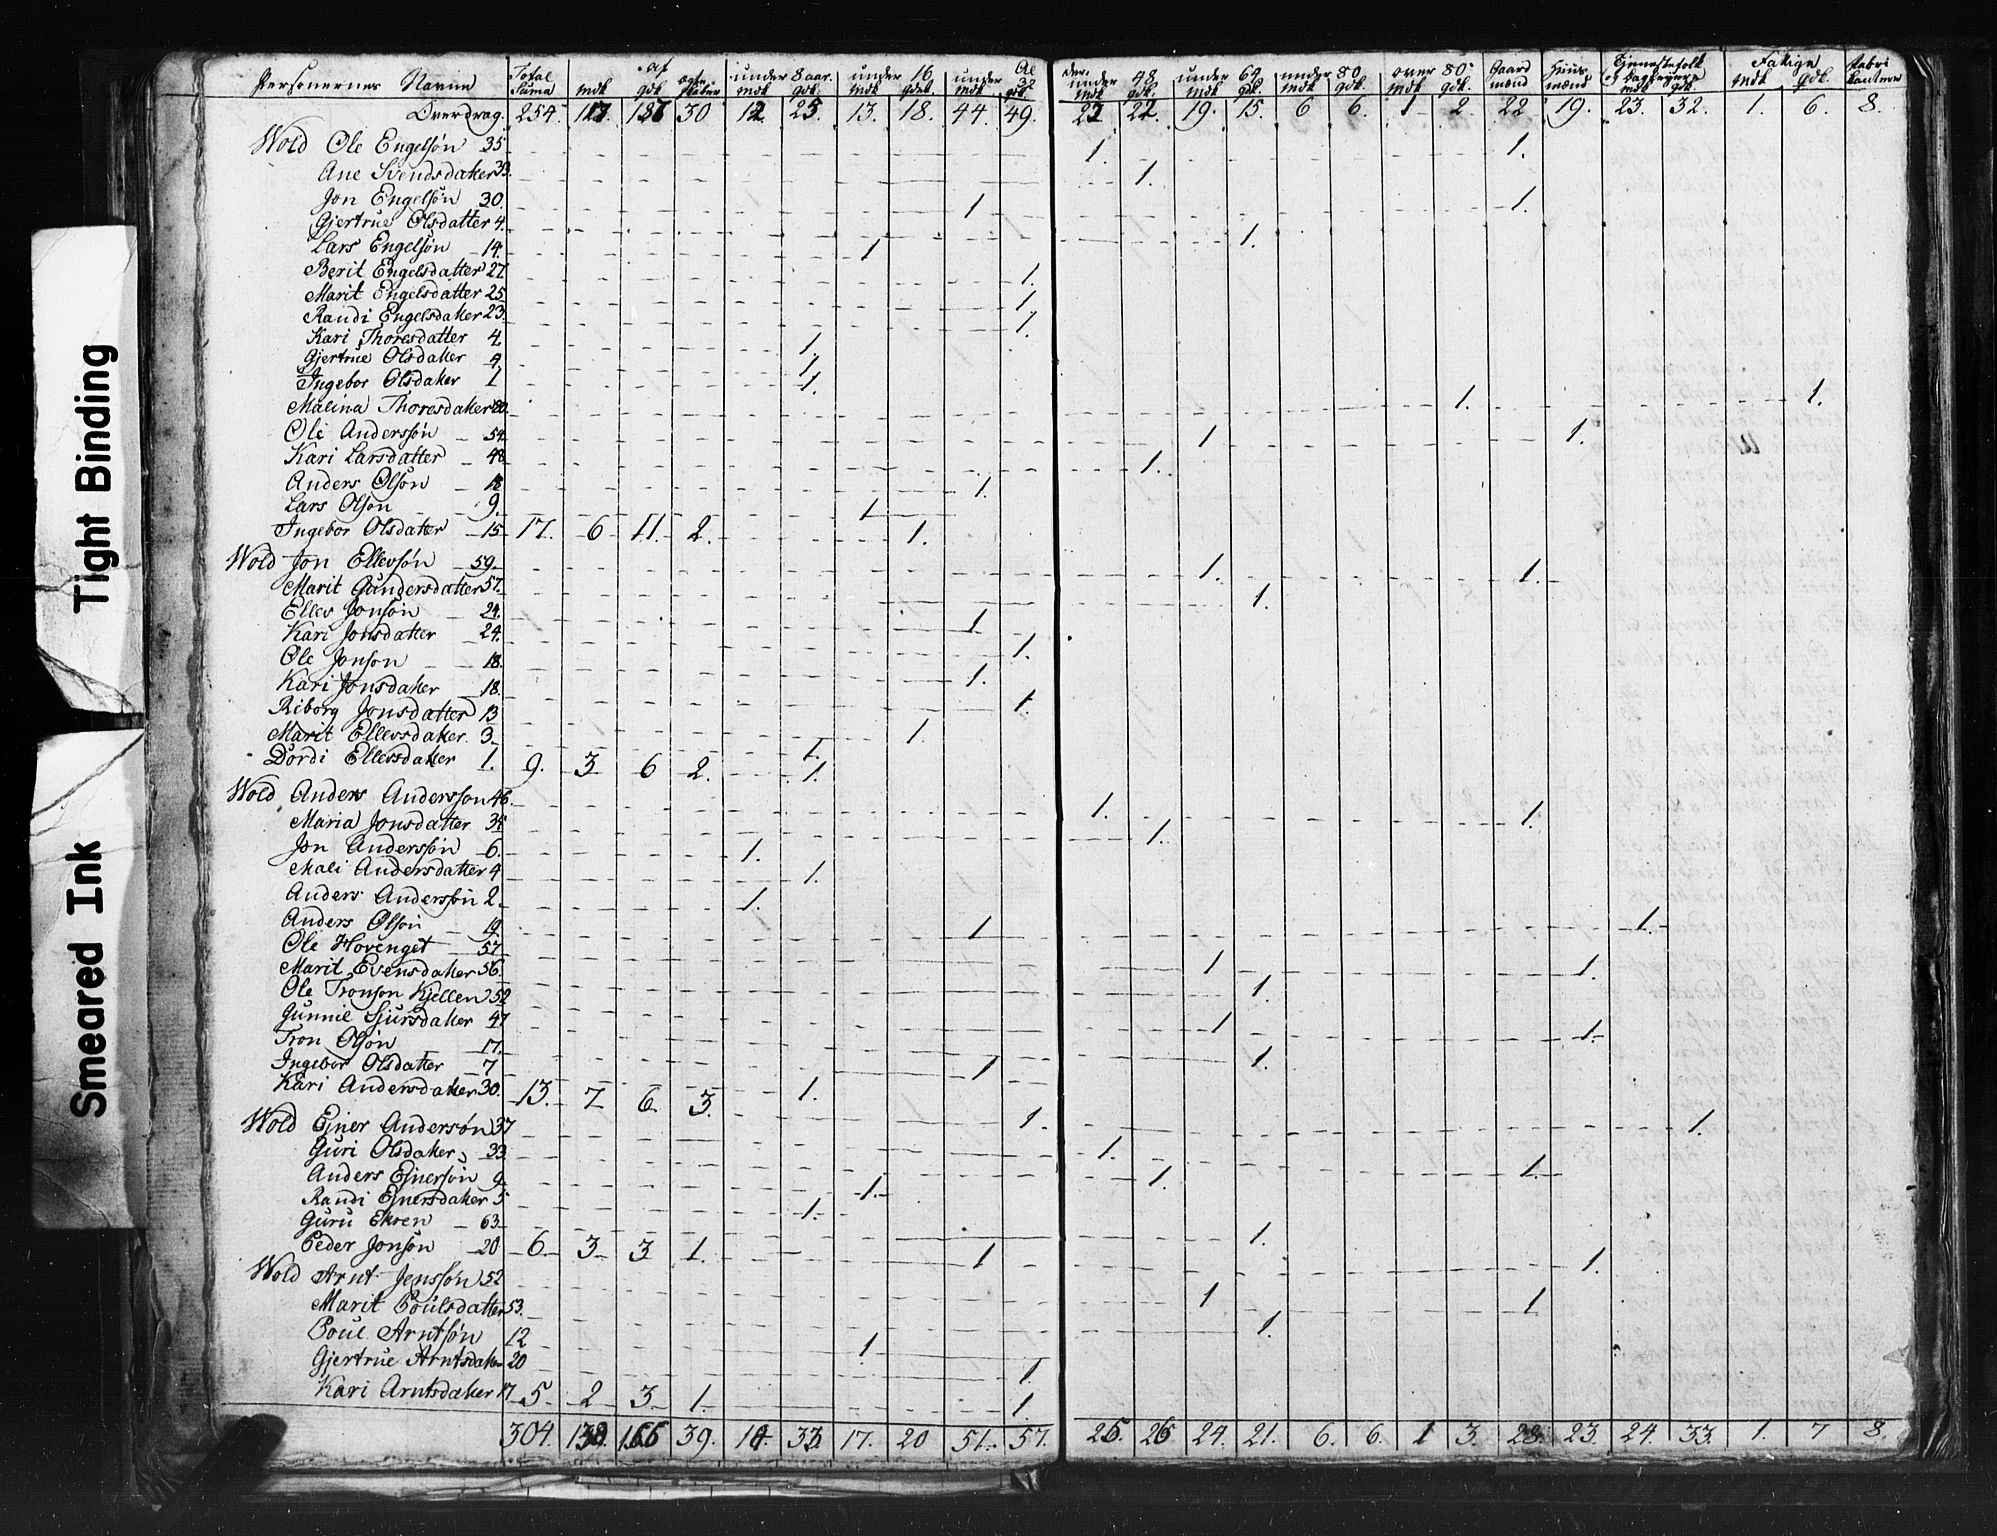 Tight Binding
Smeared Ink
Personernes Navne Total Suma af mdk gdk ægte Nader under 8 aar mdk gdk. under 16 mdk gdk. under 32 mdk gdk
under 48 mdk gdk. under 64 mdk gdk. under 80 mdk gdk. over 80 mdk gdk. Gaard mænd Huus mænd Tienestefolk og mdk gdk. Fattige mdk gdk. Fabri
Overdrag. 254. 117 137 30 12 25 13. 18. 44. 49. 22 19. 15. 6 6. 1 2. 22 19. 23. 32. 1. 6. 8.
Wold Ole Engelsøn 35 1. 1.
Ane Svendsdatter 33. 1.
Jon Engelsøn 30. 1 1.
Gjertrue Olsdatter 4. 1.
Lars Engelsøn 14. 1
Berit Engelsdatter 27. 1.
Marit Engelsdatter 25 1.
Randi Engelsdatter 23. 1.
Kari Thoresdatter 4. 1.
Gjertrue Olsdatter 4. 1.
Ingebor Olsdatter 1 1.
Malina Thoresdatter 80. 1. 1.
Ole Anderssøn 54 1 1.
Kari Larsdatter 48 1.
Anders Olsøn 18 1.
Lars Olsøn 9. 1
Ingebor Olsdatter 15 17. 6 11. 2. 1.
Wold Jon Ellevsøn 59. 1. 1.
Marit Gundersdatter 57. 1.
Ellev Jonsøn 24. 1
Kari Jonsdatter 24. 1.
Ole Jonson 18. 1.
Kari Jonsdatter 18. 1.
Riborg Jonsdatter 13 1.
Marit Ellevsdatter 3. 1.
Dordi Ellevsdatter 1. 9. 3 6 2. 1.
Wold Anders Andersson 46. 1. 1.
Maria Jonsdatter 35 1.
Jon Anderssøn 6. 1.
Mali Andersdatter 4 1.
Anders Anderssøn 2. 1.
Anders Olsøn 19. 1 1.
Ole Hovenget 57 1 1.
Marit Evensdatter 56. 1.
Ole Tronson Kjellen 52 1 1.
Gunnil Sjursdatter 47 1.
Tron Olsøn 17. 1
Ingebor Olsdatter 7 1.
Kari Andersdatter 30. 13. 7. 6. 3. 1. 1.
Wold Ejner Anderson 37 1. 1.
Guri Olsdatter 33 1.
Anders Ejnersøn 9. 1.
Randi Ejnersdatter 5 1.
Guru Ekren 63 1. 1.
Peder Jonsøn 20 6. 3 3 1. 1
Wold Arnt Jenssøn 52 1 1.
Marit Poulsdatter 53. 1.
Poul Arntsøn 12 1.
Gjertrue Arntsdatter 20 1
Kari Arntsdatter 17 5. 2 3 1. 1.
304. 138 166 39. 14. 33. 17. 20 51. 57. 25. 26 24. 21. 6. 6. 1 3. 28. 23. 24. 33. 1. 7 8.